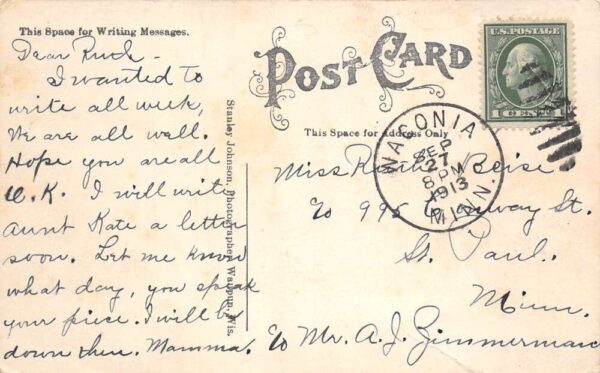 This Space for Writing Messages.
Dear Ruth -
I wanted to
write all week,
We are all well.
Hope you are all
O.K. I will write
Aunt Kate a letter
soon. Let me know
what day, you speak
your piece. I will be
down then. Mamma.
Stanley Johnson, Photographer, Waupun, Wis.
POST CARD
This Space for Address Only
U.S. POSTAGE
1 CENT 1
WACONIA
SEP
27
8 PM
1913
MINN.
Miss Ruth Beise
c/o 995 St.
St. Paul.
Minn.
c/o Mr. A. J. Zimmerman